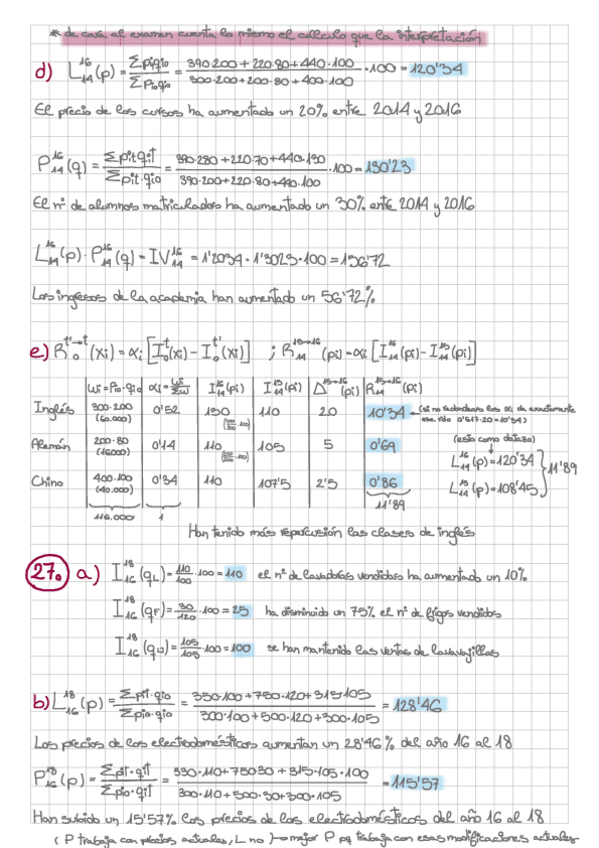 * de cara al examen cuenta lo mismo el cálculo que la interpretación
d) L₁₄¹⁶(p) = Σpitqio / Σpioqio = (390·200 + 220·80 + 440·100) / (300·200 + 200·80 + 400·100) · 100 = 120'34
El precio de los cursos ha aumentado un 20% entre 2014 y 2016
P₁₄¹⁶(q) = Σpit·qit / Σpit·qio = (390·280 + 220·70 + 440·130) / (390·200 + 220·80 + 440·100) · 100 = 130'23
El nº de alumnos matriculados ha aumentado un 30% entre 2014 y 2016
L₁₄¹⁶(p) · P₁₄¹⁶(q) = IV₁₄¹⁶ = 1'2034 · 1'3023 · 100 = 156'72
Los ingresos de la academia han aumentado un 56'72%
e) R₀^(t'→t)(xi) = αi [I₀ᵗ(xi) - I₀ᵗ'(xi)] ; R₁₄^(15→16)(pi) = αi [I₁₄¹⁶(pi) - I₁₄¹⁵(pi)]
Wi = Pio·qio αi = Wi/ΣW I₁₄¹⁶(pi) I₁₄¹⁵(pi) Δ^(15→16)(pi) R₁₄^(15→16)(pi)
Inglés 300·200 (60.000) 0'52 130 110 20 10'34 ← (si no redondeas los αi da exactamente ese nº: 0'517·20 = 10'34)
Alemán 200·80 (16000) 0'14 110 105 5 0'69
Chino 400·100 (40.000) 0'34 110 107'5 2'5 0'86
(esto como datazo)
L₁₄¹⁶(p) = 120'34
L₁₄¹⁵(p) = 108'45
11'89
116.000 1 11'89
Han tenido más repercusión las clases de inglés
27. a) I₁₆¹⁸(qL) = 110/100 · 100 = 110 el nº de lavadoras vendidas ha aumentado un 10%
I₁₆¹⁸(qF) = 30/120 · 100 = 25 ha disminuido un 75% el nº de frigos vendidos
I₁₆¹⁸(qLJ) = 105/105 · 100 = 100 se han mantenido las ventas de lavavajillas
b) L₁₆¹⁸(p) = Σpit·qio / Σpio·qio = (330·100 + 750·120 + 315·105) / (300·100 + 500·120 + 300·105) = 128'46
Los precios de los electrodomésticos aumentan un 28'46% del año 16 al 18
P₁₆¹⁸(p) = Σpit·qit / Σpio·qit = (330·110 + 750·30 + 315·105·100) / (300·110 + 500·30 + 300·105) = 115'57
Han subido un 15'57% los precios de los electrodomésticos del año 16 al 18
(P trabaja con precios actuales, L no) → mejor P pq trabaja con esas modificaciones actuales